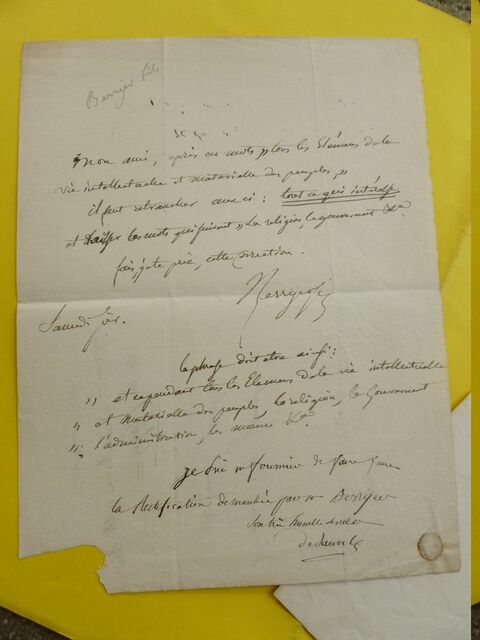 Berryer fils
Mon ami, après ces mots "tous les Élémens de la
vie intellectuelle et matérielle des peuples,"
il faut retrancher ceux ci : tout ce qui intéresse
et laisser les mots qui suivent "La religion, le gouvernement &a
fais, je te prie, cette correction.
Berryer fils
Samedi soir.
la phrase doit être ainsi :
" et cependant tous les Elemens de la vie intellectuelle
" et Matérielle des peuples, la religion, le Gouvernement
" l'administration, les mœurs &a
je prie mr fournier de faire faire
la Rectification demandée par mr Berryer
son très humble serviteur